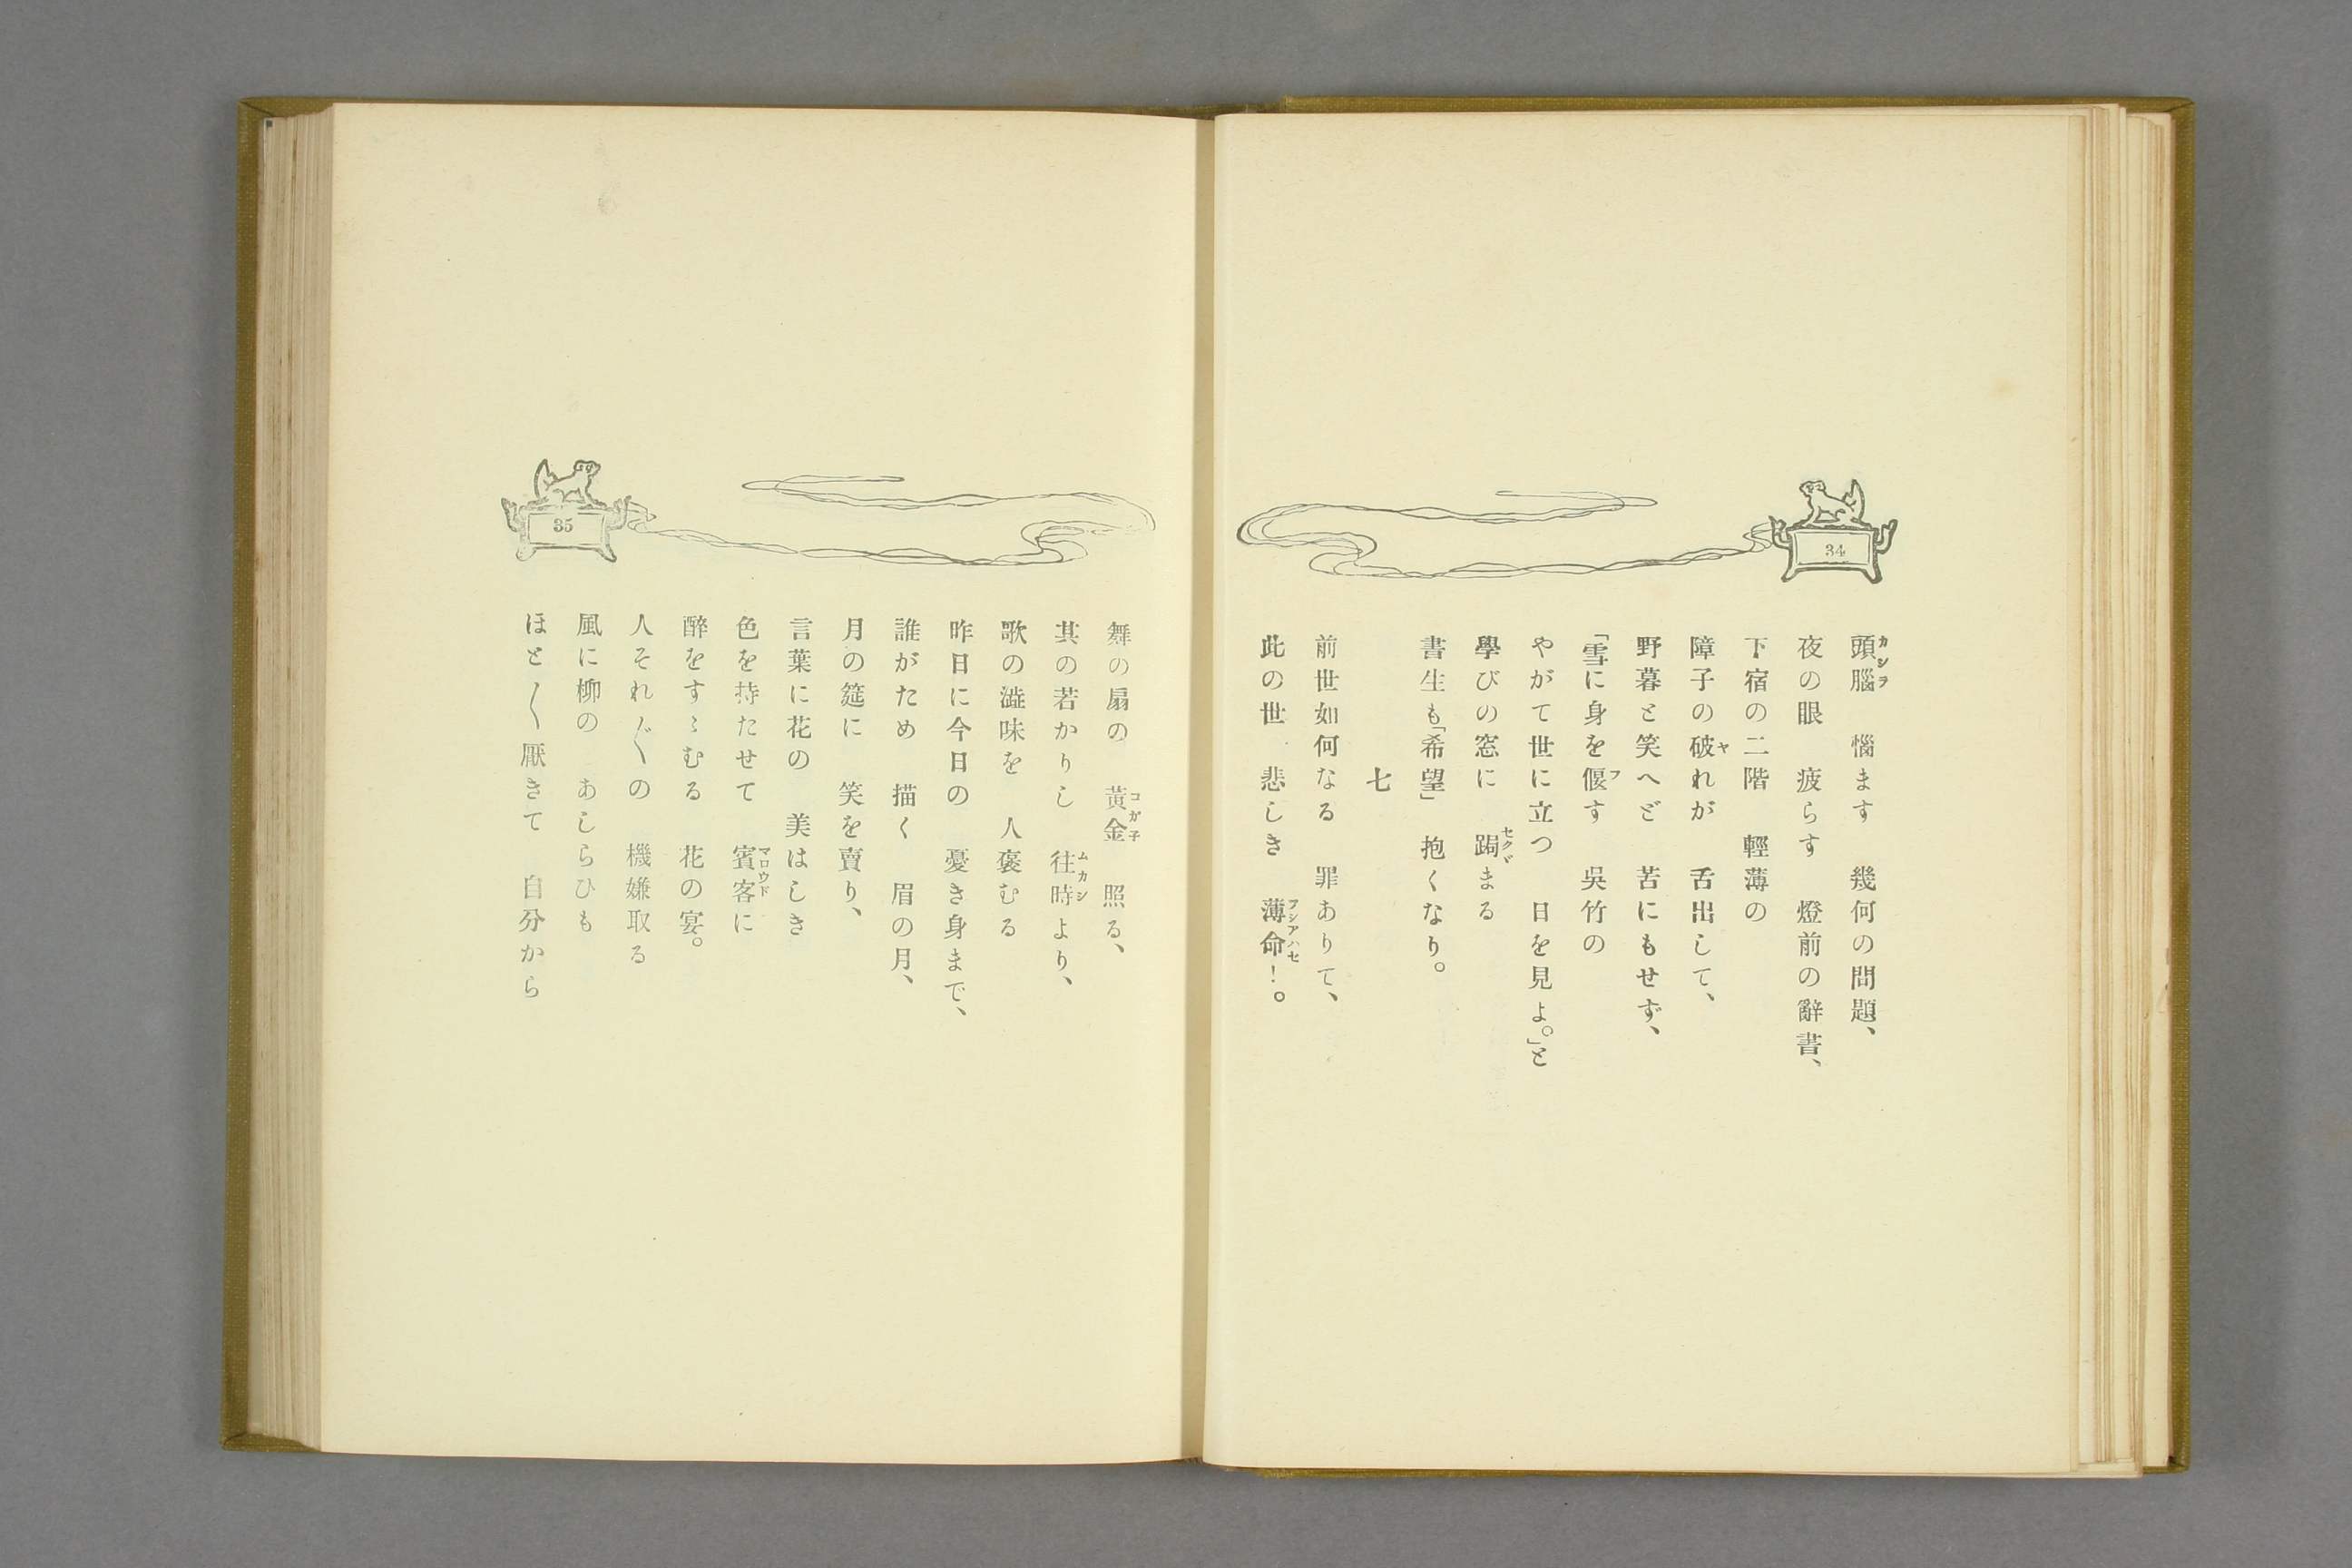 34
頭腦　惱ます　幾何の問題、
夜の眼　疲らす　燈前の辭書、
下宿の二階　輕薄の
障子の破れが　舌出して、
野暮と笑へど　苦にもせず、
「雪に身を偃す　吳竹の
やがて世に立つ　日を見よ。」と
學びの窓に　跼まる
書生も「希望」　抱くなり。
七
前世如何なる　罪ありて、
此の世　悲しき　薄命！。
35
舞の扇の　黃金　照る、
其の若かりし　往時より、
歌の澁味を　人褒むる
昨日に今日の　憂き身まで、
誰がため　描く　眉の月、
月の筵に　笑を賣り、
言葉に花の　美はしき
色を持たせて　賓客に
醉をすゝむる　花の宴。
人それ〴〵の　機嫌取る
風に柳の　あしらひも
ほと〳〵厭きて　自分から